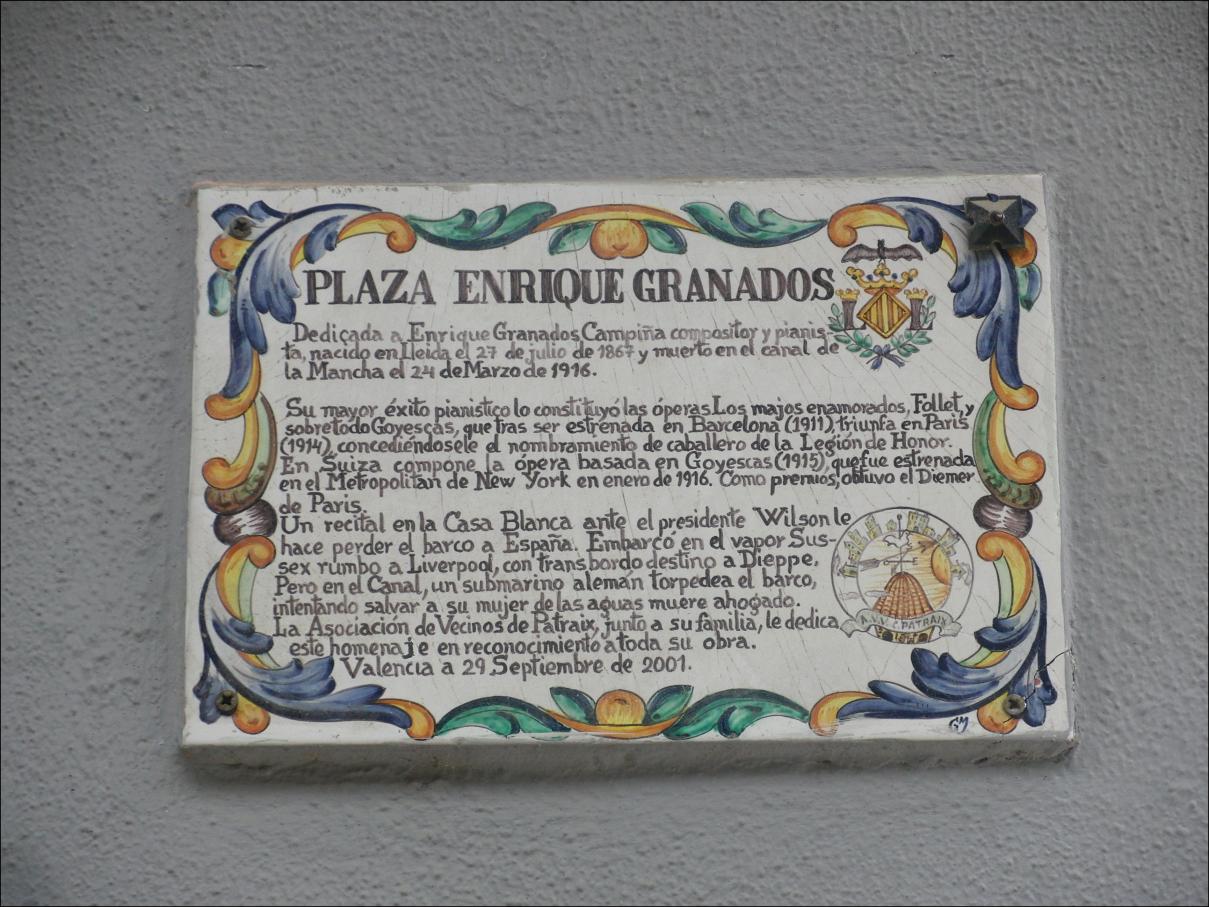 PLAZA ENRIQUE GRANADOS
L L
Dediçada a Enrique Granados Campiña compositor y pianis-
ta, nacido en Lleida el 27 de julio de 1867 y muerto en el canal de
la Mancha el 24 de Marzo de 1916.
Su mayor éxito pianistico lo constituyó las óperas Los majos enamorados, Follet, y
sobretodo Goyescas, que tras ser estrenada en Barcelona (1911), triunfa en Paris
(1914), concediéndosele el nombramiento de caballero de la Legión de Honor.
En Suiza compone la ópera basada en Goyescas (1915), que fue estrenada
en el Metropolitan de New York en enero de 1916. Como premios, obtuvo el Diemer
de Paris.
Un recital en la Casa Blanca ante el presidente Wilson le
hace perder el barco a España. Embarcó en el vapor Sus-
sex rumbo a Liverpool, con transbordo destino a Dieppe.
Pero en el Canal, un submarino alemán torpedea el barco,
intentando salvar a su mujer de las aguas muere ahogado.
La Asociación de Vecinos de Patraix, junto a su familia, le dedica
este homenaje en reconocimiento a toda su obra.
Valencia a 29 Septiembre de 2001.
A.V.V. C. PATRAIX
GM